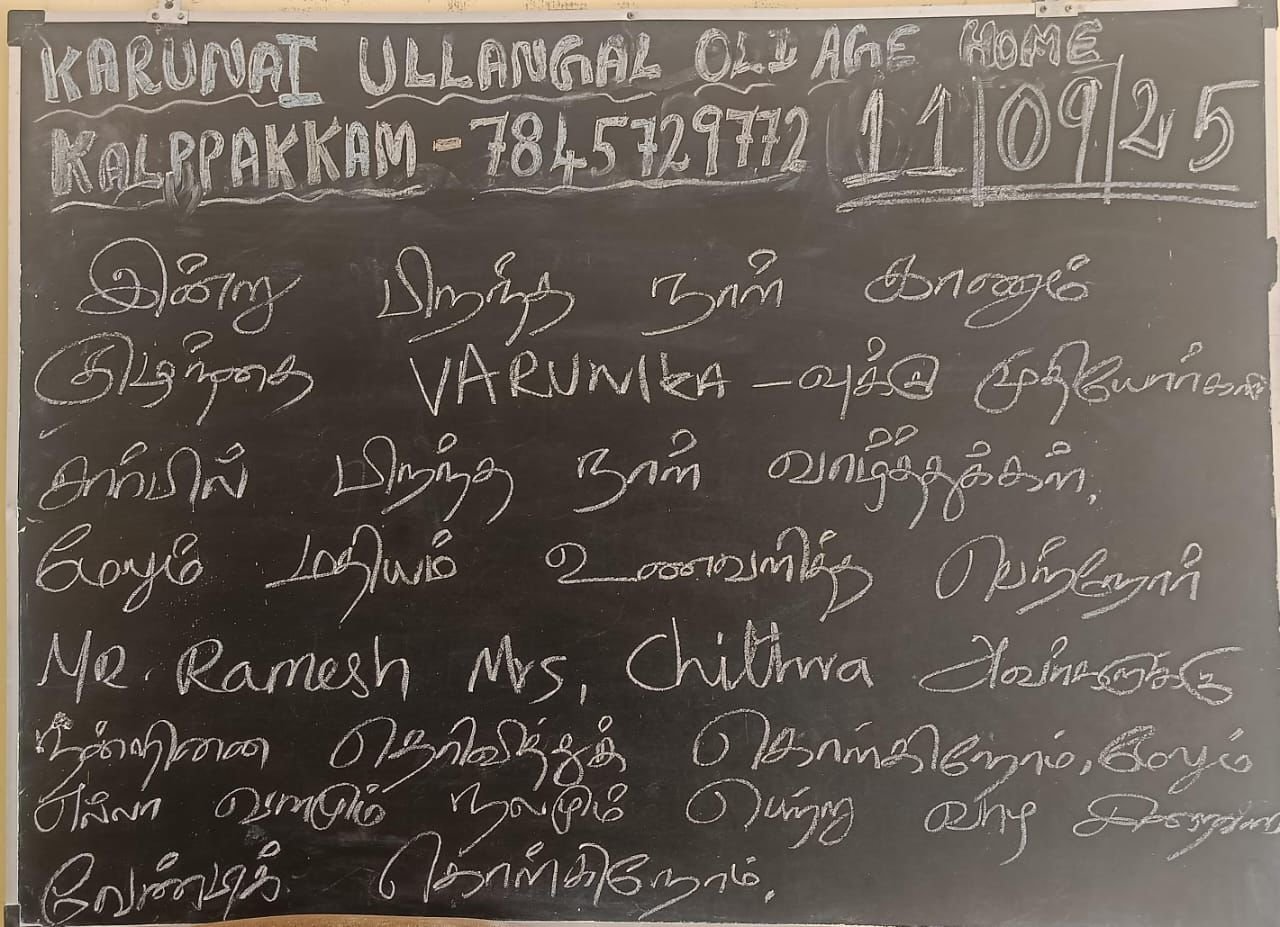 KARUNAI ULLANGAL OLD AGE HOME
KALPPAKKAM - 7845729772 11|09|25
இன்று பிறந்த நாள் காணும்
குழந்தை VARUNIKA - வுக்கு முதியோர்கள்
சார்பில் பிறந்த நாள் வாழ்த்துக்கள்.
மேலும் மதியம் உணவளித்த பெற்றோர்
MR. Ramesh Mrs, Chithra அவர்களுக்கு
நன்றியினை தெரிவித்துக் கொள்கிறோம், மேலும்
எல்லா வளமும் நலமும் பெற்று வாழ
வேண்டிக் கொள்கிறோம்.